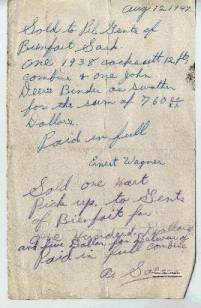 Aug 12, 1947
Sold to Pete Gents of
Bienfait Sask.
One 1938 cockshutt 12 ft,
combine & one John
Deere Binder as swather
for the sum of 760
Dollars.
Paid in full
Ernest Wagner
Sold one Hart
Pick up, to Gents
of Bienfait for
one Hunderd Dollars
and five Dollar for
Paid in full combine
as